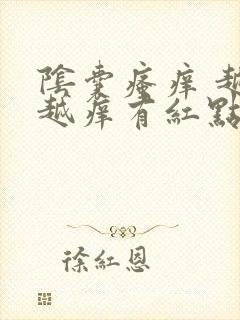 陰囊瘙痒越
越痒有紅點
徐紅恩